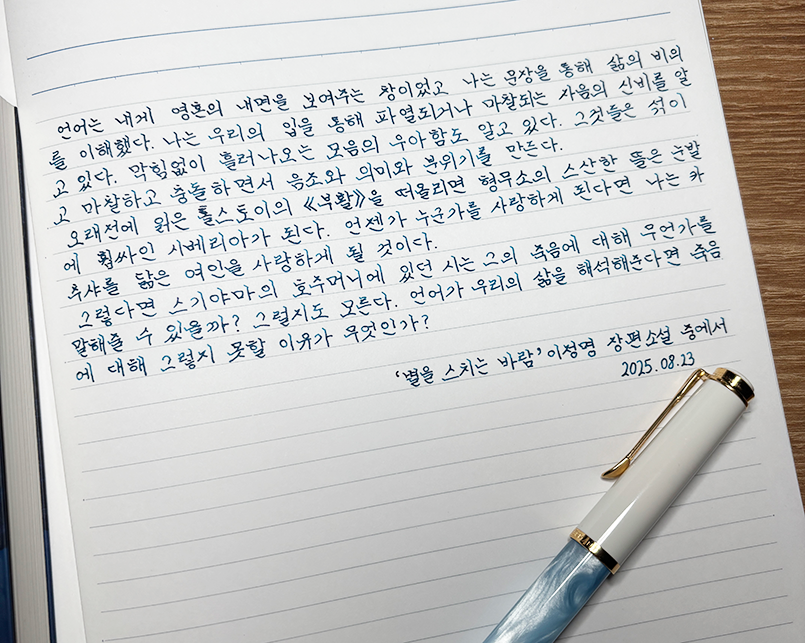 언어는 내게 영혼의 내면을 보여주는 창이었고 나는 문장을 통해 삶의 비의
를 이해했다. 나는 우리의 입을 통해 파열되거나 마찰되는 자음의 신비를 알
고 있다. 막힘없이 흘러나오는 모음의 우아함도 알고 있다. 그것들은 섞이
고 마찰하고 충돌하면서 음조와 의미와 분위기를 만든다.
오래전에 읽은 톨스토이의 《부활》을 떠올리면 형무소의 스산한 뜰은 눈발
에 휩싸인 시베리아가 된다. 언젠가 누군가를 사랑하게 된다면 나는 카
추샤를 닮은 여인을 사랑하게 될 것이다.
그렇다면 스기야마의 호주머니에 있던 시는 그의 죽음에 대해 무언가를
말해줄 수 있을까? 그럴지도 모른다. 언어가 우리의 삶을 해석해준다면 죽음
에 대해 그렇지 못할 이유가 무엇인가?
'별을 스치는 바람' 이정명 장편소설 중에서
2025.08.23